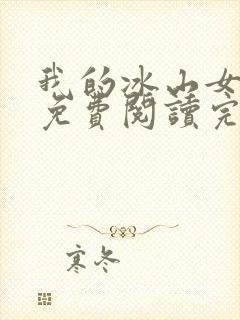 我的冰山女
免費閱讀完
寒冬